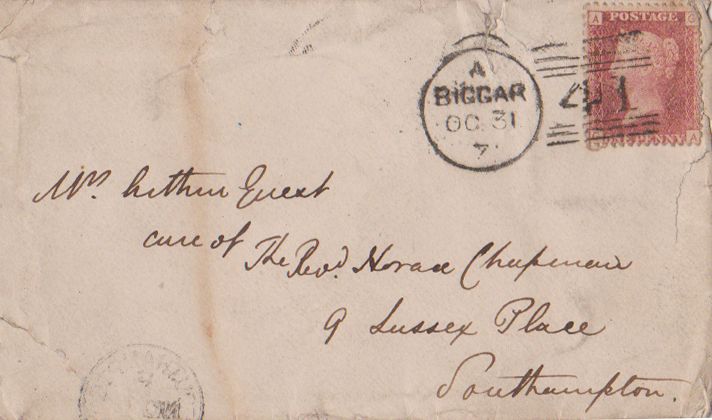 A G
POSTAGE
A
BIGGAR
OC 31
7
41
G A
ONE PENNY
Mrs. Arthur Guest
care of The Revd. Horace Chapman
9 Sussex Place
Southampton.